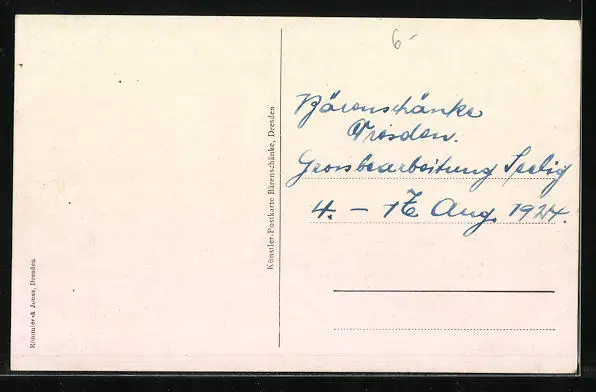 6-
Bärenschänke
Dresden.
Grossbearbeitung Seelig
4. – 17. Aug. 1924.
Künstler-Postkarte Bärenschänke, Dresden
Römmler & Jonas, Dresden